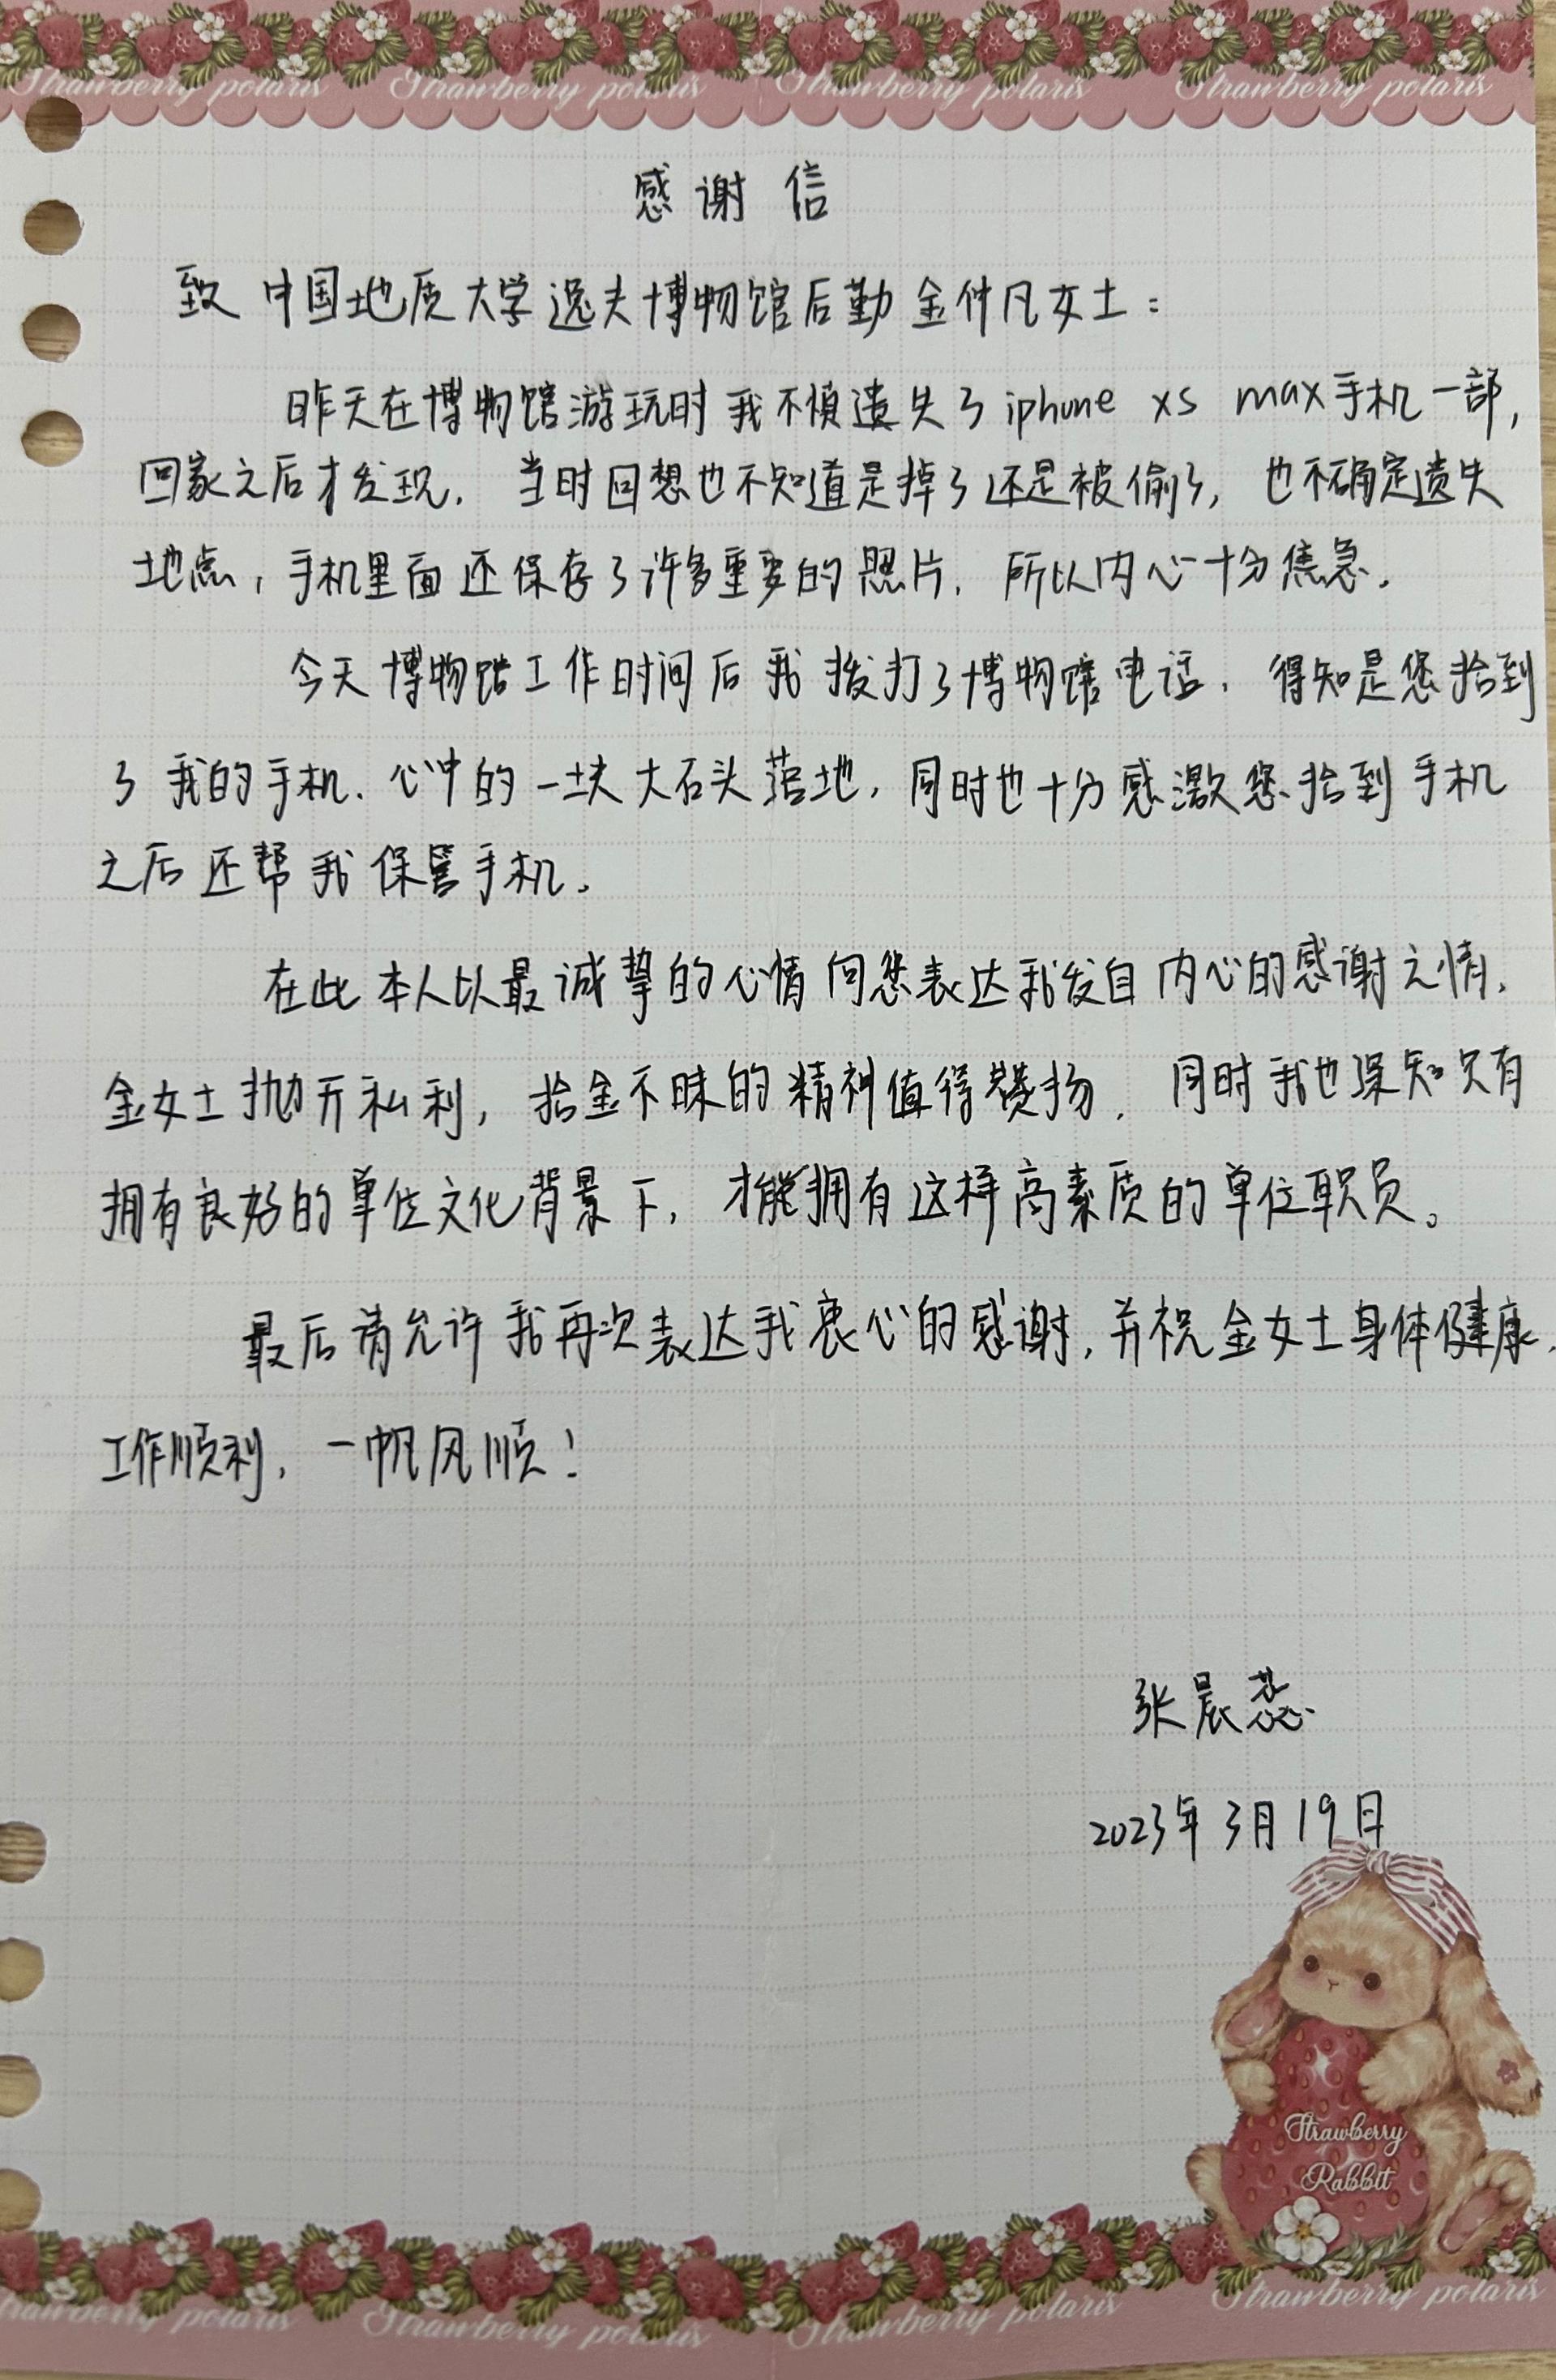 Strawberry polaris Strawberry polaris Strawberry polaris Strawberry polaris
感谢信
致 中国地质大学逸夫博物馆后勤 金仲凡女士：
昨天在博物馆游玩时我不慎遗失了iphone xs max手机一部，
回家之后才发现．当时回想也不知道是掉了还是被偷了，也不确定遗失
地点，手机里面还保存了许多重要的照片．所以内心十分焦急．
今天博物馆工作时间后我拨打了博物馆电话．得知是您拾到
了我的手机．心中的一块大石头落地，同时也十分感激您拾到手机
之后还帮我保管手机．
在此本人以最诚挚的心情向您表达我发自内心的感谢之情．
金女士抛开私利，拾金不昧的精神值得赞扬．同时我也深知只有
拥有良好的单位文化背景下，才能拥有这样高素质的单位职员。
最后请允许我再次表达我衷心的感谢，并祝金女士身体健康．
工作顺利，一帆风顺！
张晨蕊
2023年3月19日
Strawberry
Rabbit
Strawberry polaris Strawberry polaris Strawberry polaris Strawberry polaris